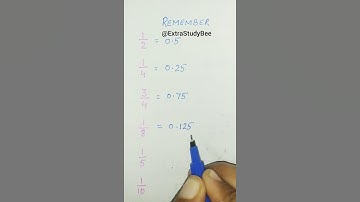 REMEMBER
@ExtraStudyBee
1/2 = 0.5
1/4 = 0.25
3/4 = 0.75
1/8 = 0.125
1/5
1/10